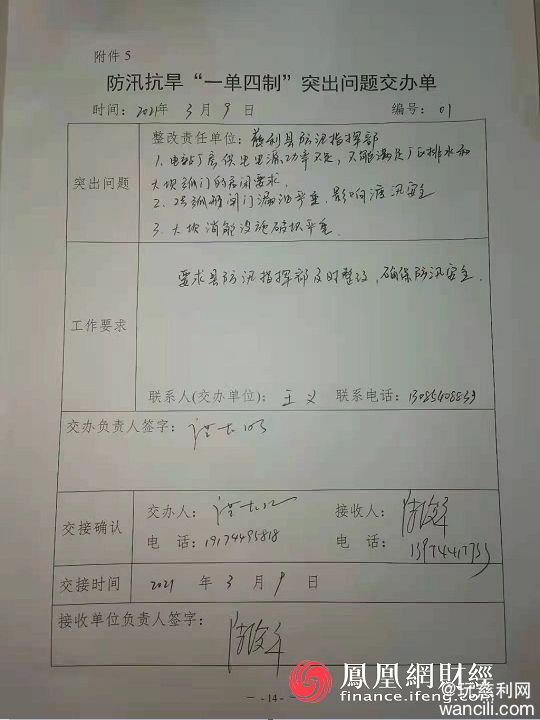 附件 5
防汛抗旱“一单四制”突出问题交办单
时间：2021年 3 月 9 日 编号：01
突出问题
整改责任单位：慈利县防汛指挥部
1. 电站厂房供电电源功率不足，不能满足厂区排水和
大坝弧门的启闭要求。
2. 2#弧形闸门漏水严重，影响渡汛安全
3. 大坝消能设施破坏严重.
工作要求
要求县防汛指挥部及时整改，确保防汛安全.
联系人(交办单位)：王义 联系电话：
交办负责人签字：
交接确认
交办人： 接收人：
电 话：19174495818 电 话：
交接时间 2021 年 3 月 9 日
接收单位负责人签字：
— -14- —
鳳凰網財經
finance.ifeng.com
@玩慈利网
wancili.com